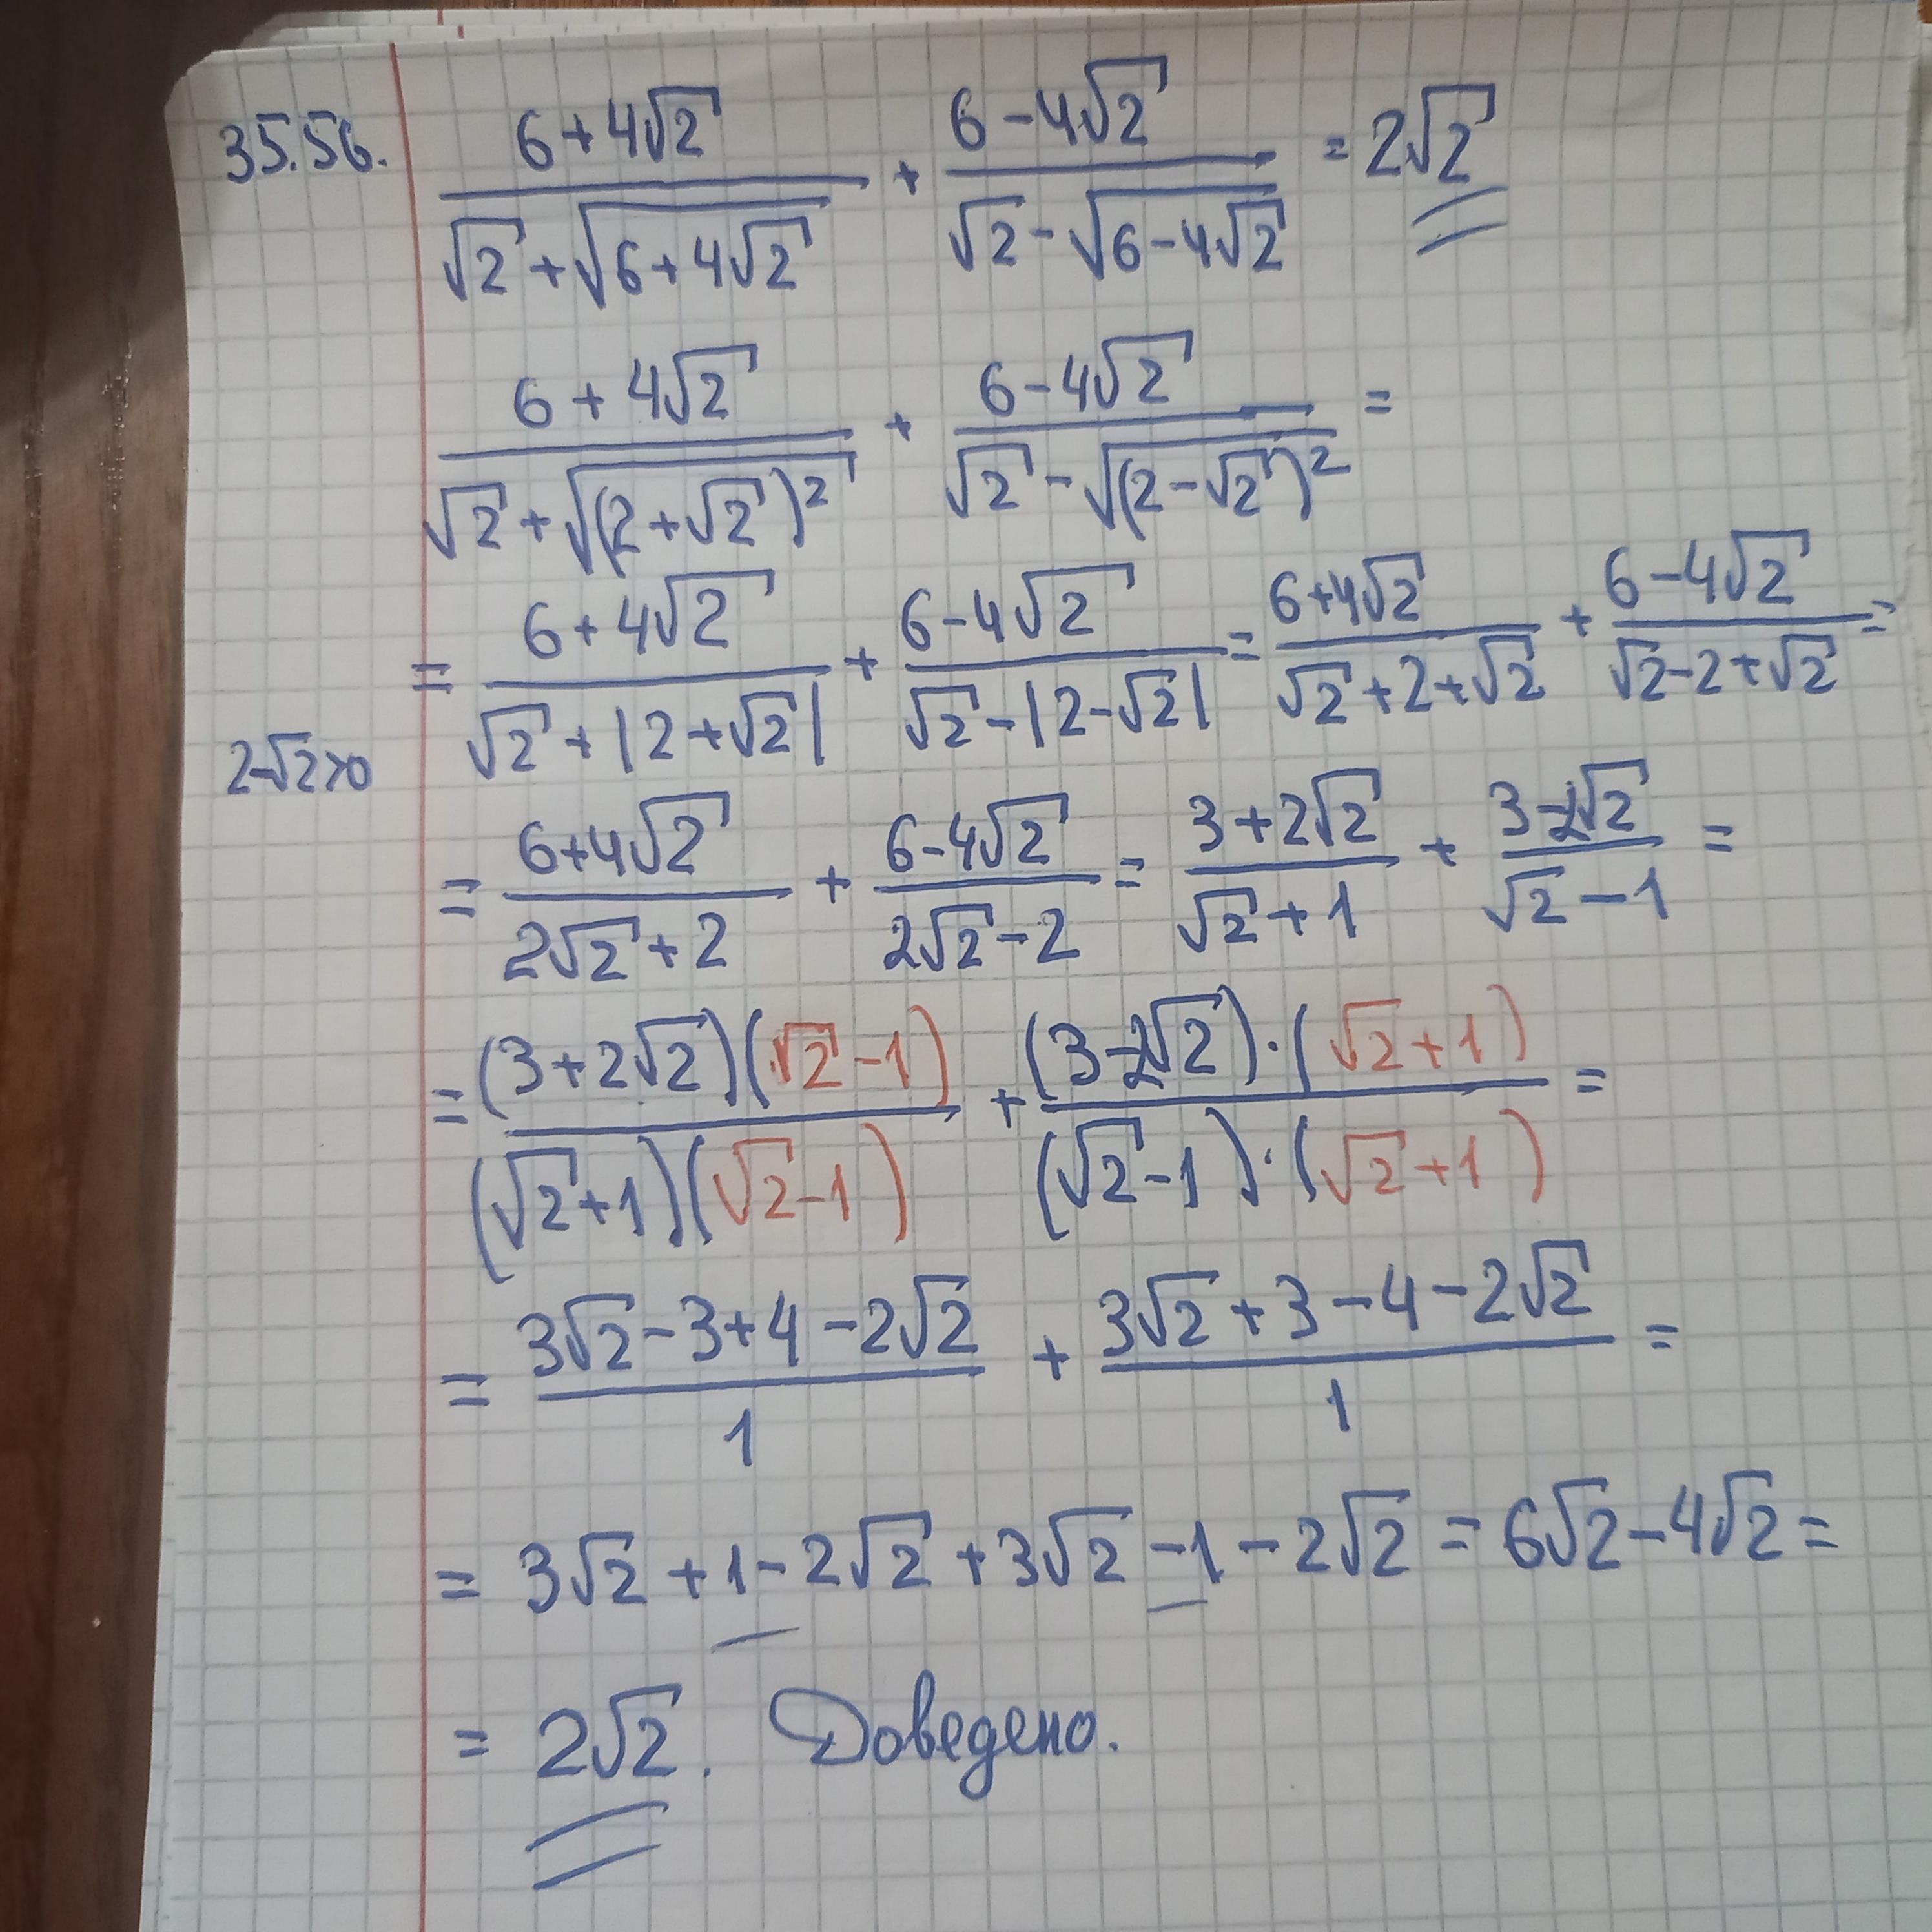 35.56. (6+4√2)/(√2+√(6+4√2)) + (6-4√2)/(√2-√(6-4√2)) = 2√2
(6+4√2)/(√2+√((2+√2)²)) + (6-4√2)/(√2-√((2-√2)²)) =
= (6+4√2)/(√2+|2+√2|) + (6-4√2)/(√2-|2-√2|) = (6+4√2)/(√2+2+√2) + (6-4√2)/(√2-2+√2) =
2-√2>0
= (6+4√2)/(2√2+2) + (6-4√2)/(2√2-2) = (3+2√2)/(√2+1) + (3-2√2)/(√2-1) =
= ((3+2√2)(√2-1))/((√2+1)(√2-1)) + ((3-2√2)·(√2+1))/((√2-1)·(√2+1)) =
= (3√2-3+4-2√2)/1 + (3√2+3-4-2√2)/1 =
= 3√2+1-2√2+3√2-1-2√2 = 6√2-4√2 =
= 2√2. Доведено.